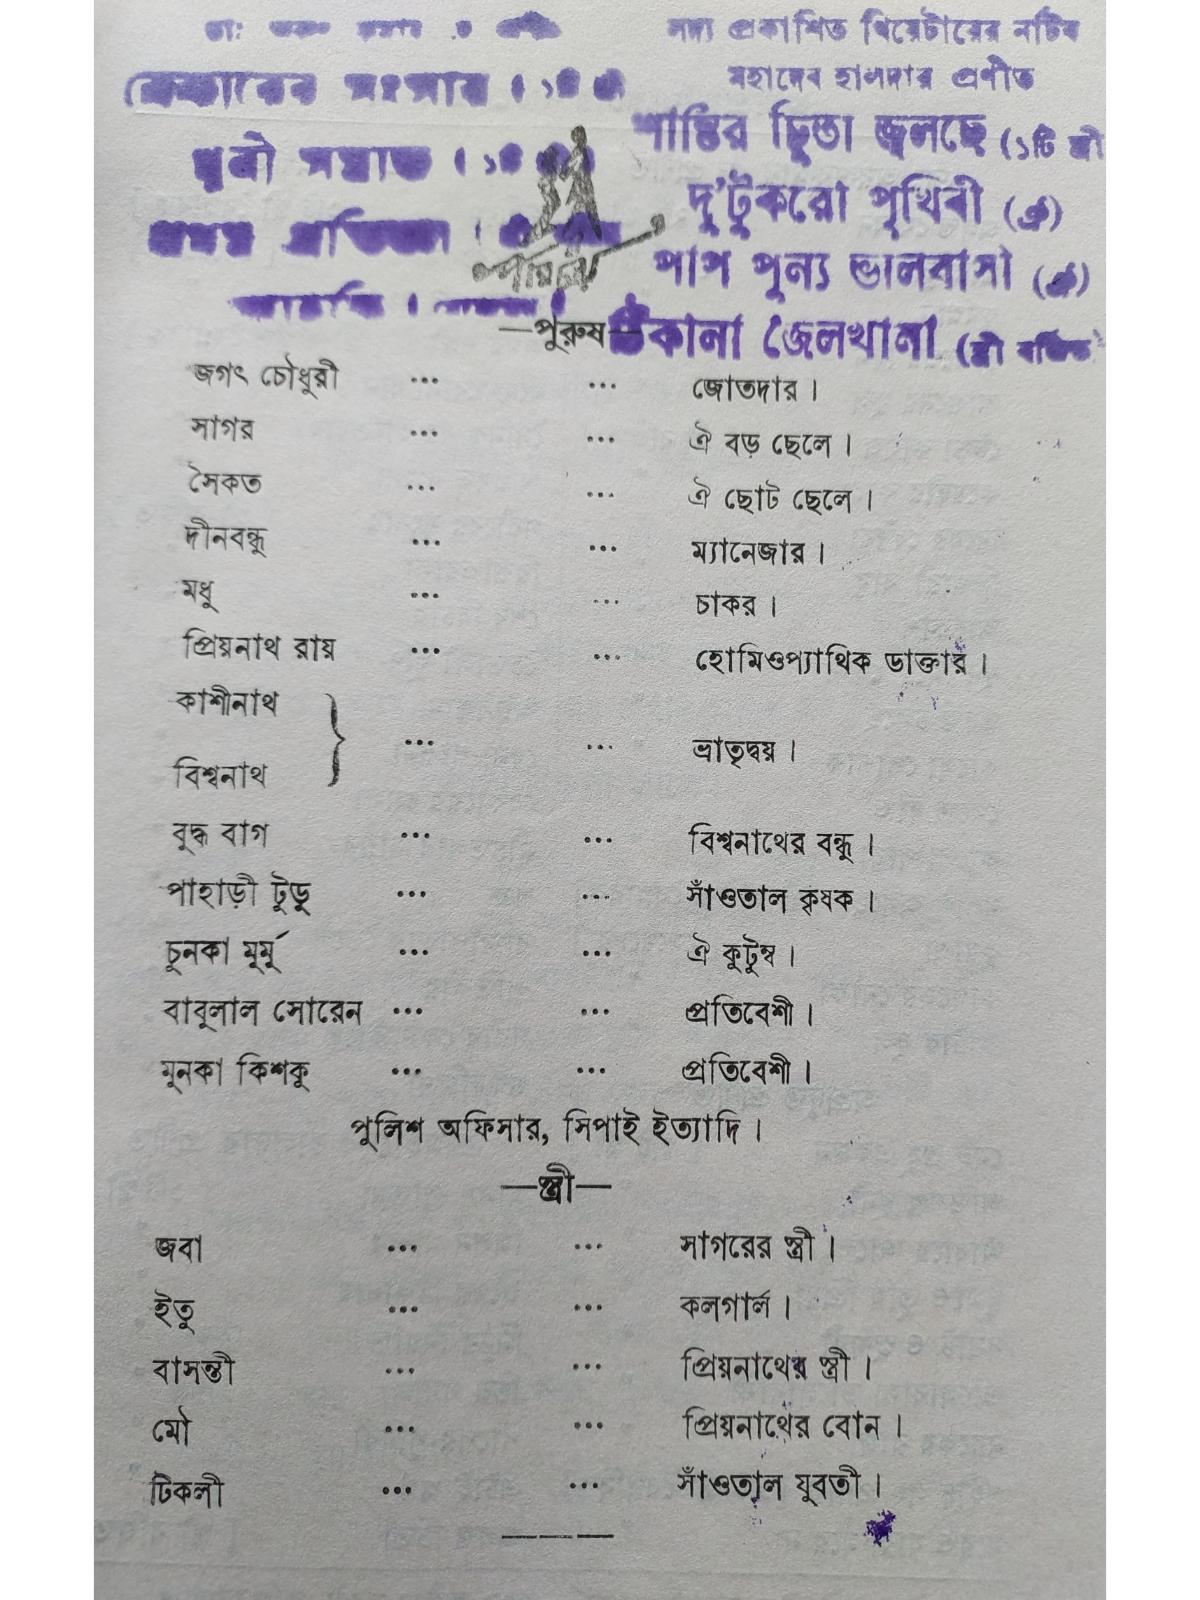 সদ্য প্রকাশিত থিয়েটারের নটিব
মহাদেব হালদার প্রণীত
বেকারের সংসার।
শান্তির চিতা জ্বলছে (১টি স্ত্রী
দু'টুকরো পৃথিবী (ঐ)
পাপ পুন্য ভালবাসা (ঐ)
ঠিকানা জেলখানা (স্ত্রী বর্জিত
পরিচয়
—পুরুষ—
জগৎ চৌধুরী ... ... জোতদার।
সাগর ... ... ঐ বড় ছেলে।
সৈকত ... ... ঐ ছোট ছেলে।
দীনবন্ধু ... ... ম্যানেজার।
মধু ... ... চাকর।
প্রিয়নাথ রায় ... ... হোমিওপ্যাথিক ডাক্তার।
কাশীনাথ
বিশ্বনাথ } ... ... ভ্রাতৃদ্বয়।
বুদ্ধ বাগ ... ... বিশ্বনাথের বন্ধু।
পাহাড়ী টুডু ... ... সাঁওতাল কৃষক।
চুনকা মুর্মু ... ... ঐ কুটুম্ব।
বাবুলাল সোরেন ... ... প্রতিবেশী।
মুনকা কিশকু ... ... প্রতিবেশী।
পুলিশ অফিসার, সিপাই ইত্যাদি।
—স্ত্রী—
জবা ... ... সাগরের স্ত্রী।
ইতু ... ... কলগার্ল।
বাসন্তী ... ... প্রিয়নাথের স্ত্রী।
মৌ ... ... প্রিয়নাথের বোন।
টিকলী ... ... সাঁওতাল যুবতী।